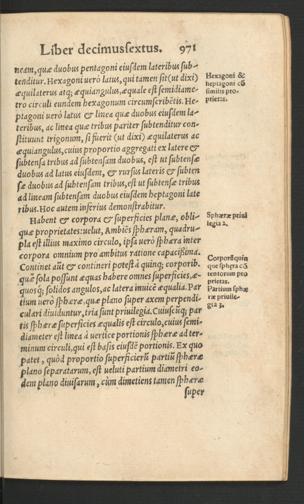 Liber decimussextus. 971
neam, quæ duobus pentagoni eiusdem lateribus sub-
tenditur. Hexagoni uerò latus, qui tamen sit (ut dixi)
æquilaterus atq; æquiangulus, æquale est semidiame-
tro circuli eundem hexagonum circumscribẽtis. He-
ptagoni uerò latus & linea quæ duobus eiusdem la-
teribus, ac linea quæ tribus pariter subtenditur con-
stituunt trigonum, si fuerit (ut dixi) æquilaterus ac
æquiangulus, cuius proportio aggregati ex latere &
subtensa tribus ad subtensam duobus, est ut subtensæ
duobus ad latus eiusdem, & rursus lateris & subten
sæ duobus ad subtensam tribus, est ut subtensæ tribus
ad lineam subtensam duobus eiusdem heptagoni late
ribus. Hoc autem inferius demonstrabitur.
Habent & corpora & superficies planæ, obli-
quæ proprietates: uelut, Ambiẽs sphæram, quadru-
pla est illius maximo circulo, ipsa uerò sphæra inter
corpora omnium pro ambitus ratione capacissima.
Continet aũt & contineri potest à quinq; corporib.
quæ sola possunt æquas habere omnes superficies, æ-
quosq; solidos angulos, ac latera inuicẽ æqualia. Par
tium uerò sphæræ, quæ plano super axem perpendi-
culari diuiduntur, tria sunt priuilegia. Cuiuscũq; par
tis sphæræ superficies æqualis est circulo, cuius semi-
diameter est linea à uertice portionis sphæræ ad ter-
minum circuli, qui est basis eiusdẽ portionis. Ex quo
patet, quòd proportio superficierũ partiũ sphæræ
plano separatarum, est ueluti partium diametri eo-
dem plano diuisarum, cùm dimetiens tamen sphæræ
super
Hexagoni &
heptagoni cõ
similis pro-
prietas.
Sphæræ priui
legia 2.
Corpori quin
que sphæra cõ
tentorum pro
prietas.
Partium sphæ
ræ priuile-
gia 3.